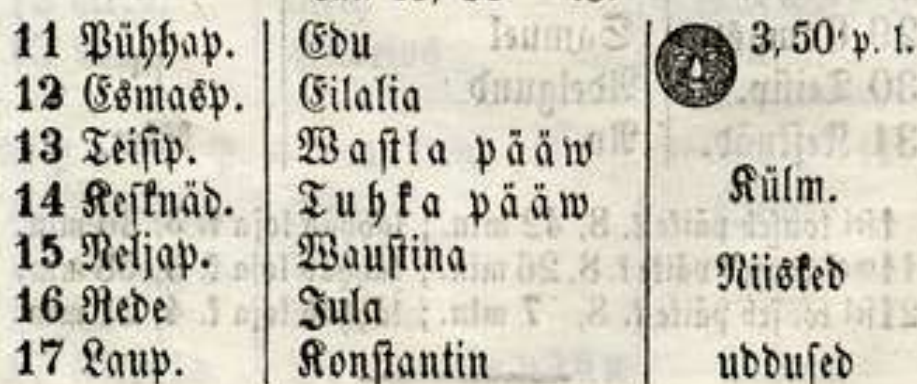 11 Pühhap. Edu 3, 50' p. l.
12 Esmasp. Eilalia
13 Teisip. Wastla pääw
14 Kesknäd. Tuhka pääw Külm.
15 Neljap. Waustina Niisked
16 Rede Jula
17 Laup. Konstantin uddused